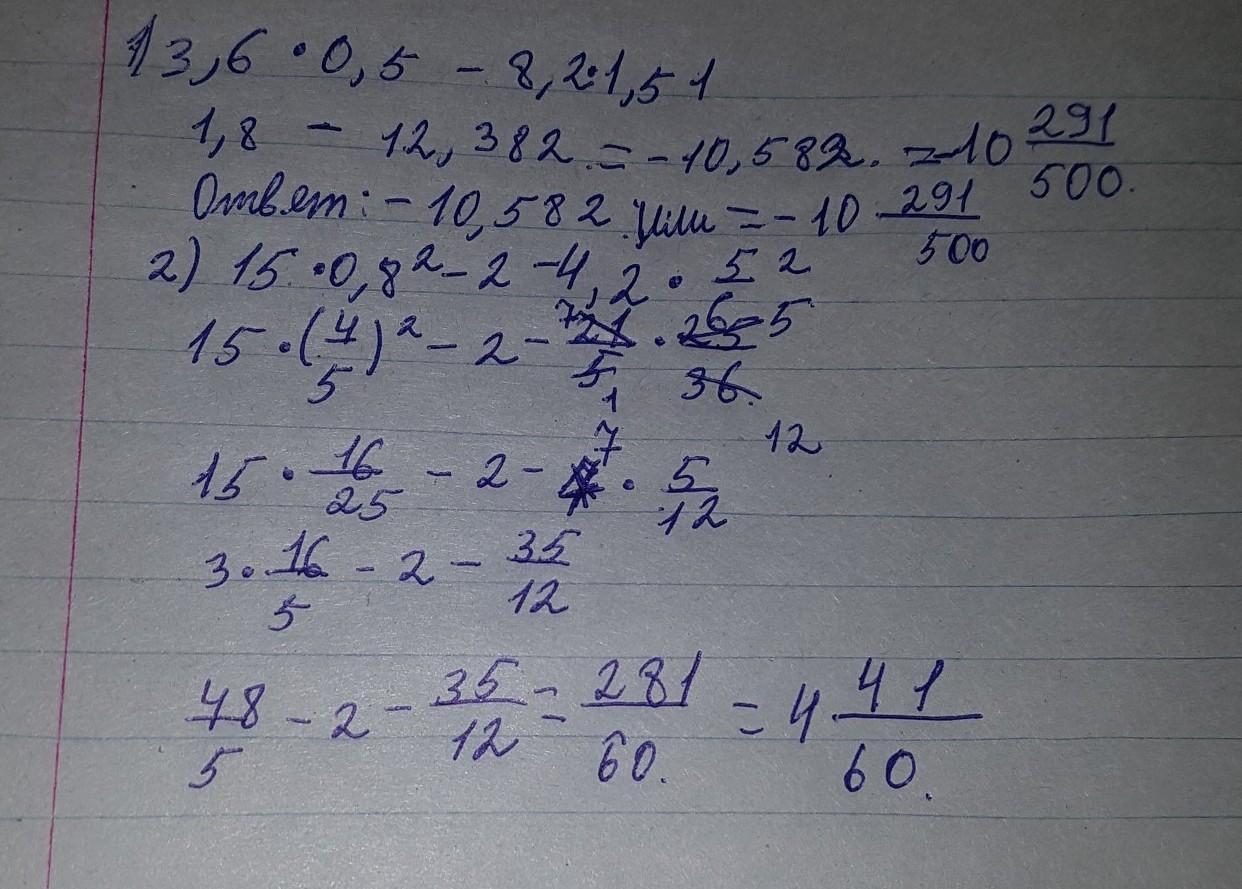 1) 3,6 · 0,5 - 8,2·1,51
1,8 - 12,382 = -10,582. = -10 291/500.
Ответ: -10,582 или = -10 291/500
2) 15 · 0,8² - 2 - 4,2 · 5/6 ²
15 · (4/5)² - 2 - 7 21/5 1 · 25 5/36.
12
15 · 16/25 - 2 - 7 · 5/12
3 · 16/5 - 2 - 35/12
48/5 - 2 - 35/12 = 281/60. = 4 41/60.